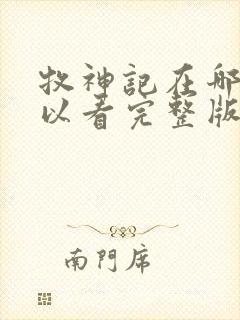 牧神記在哪
以看完整版
南門席